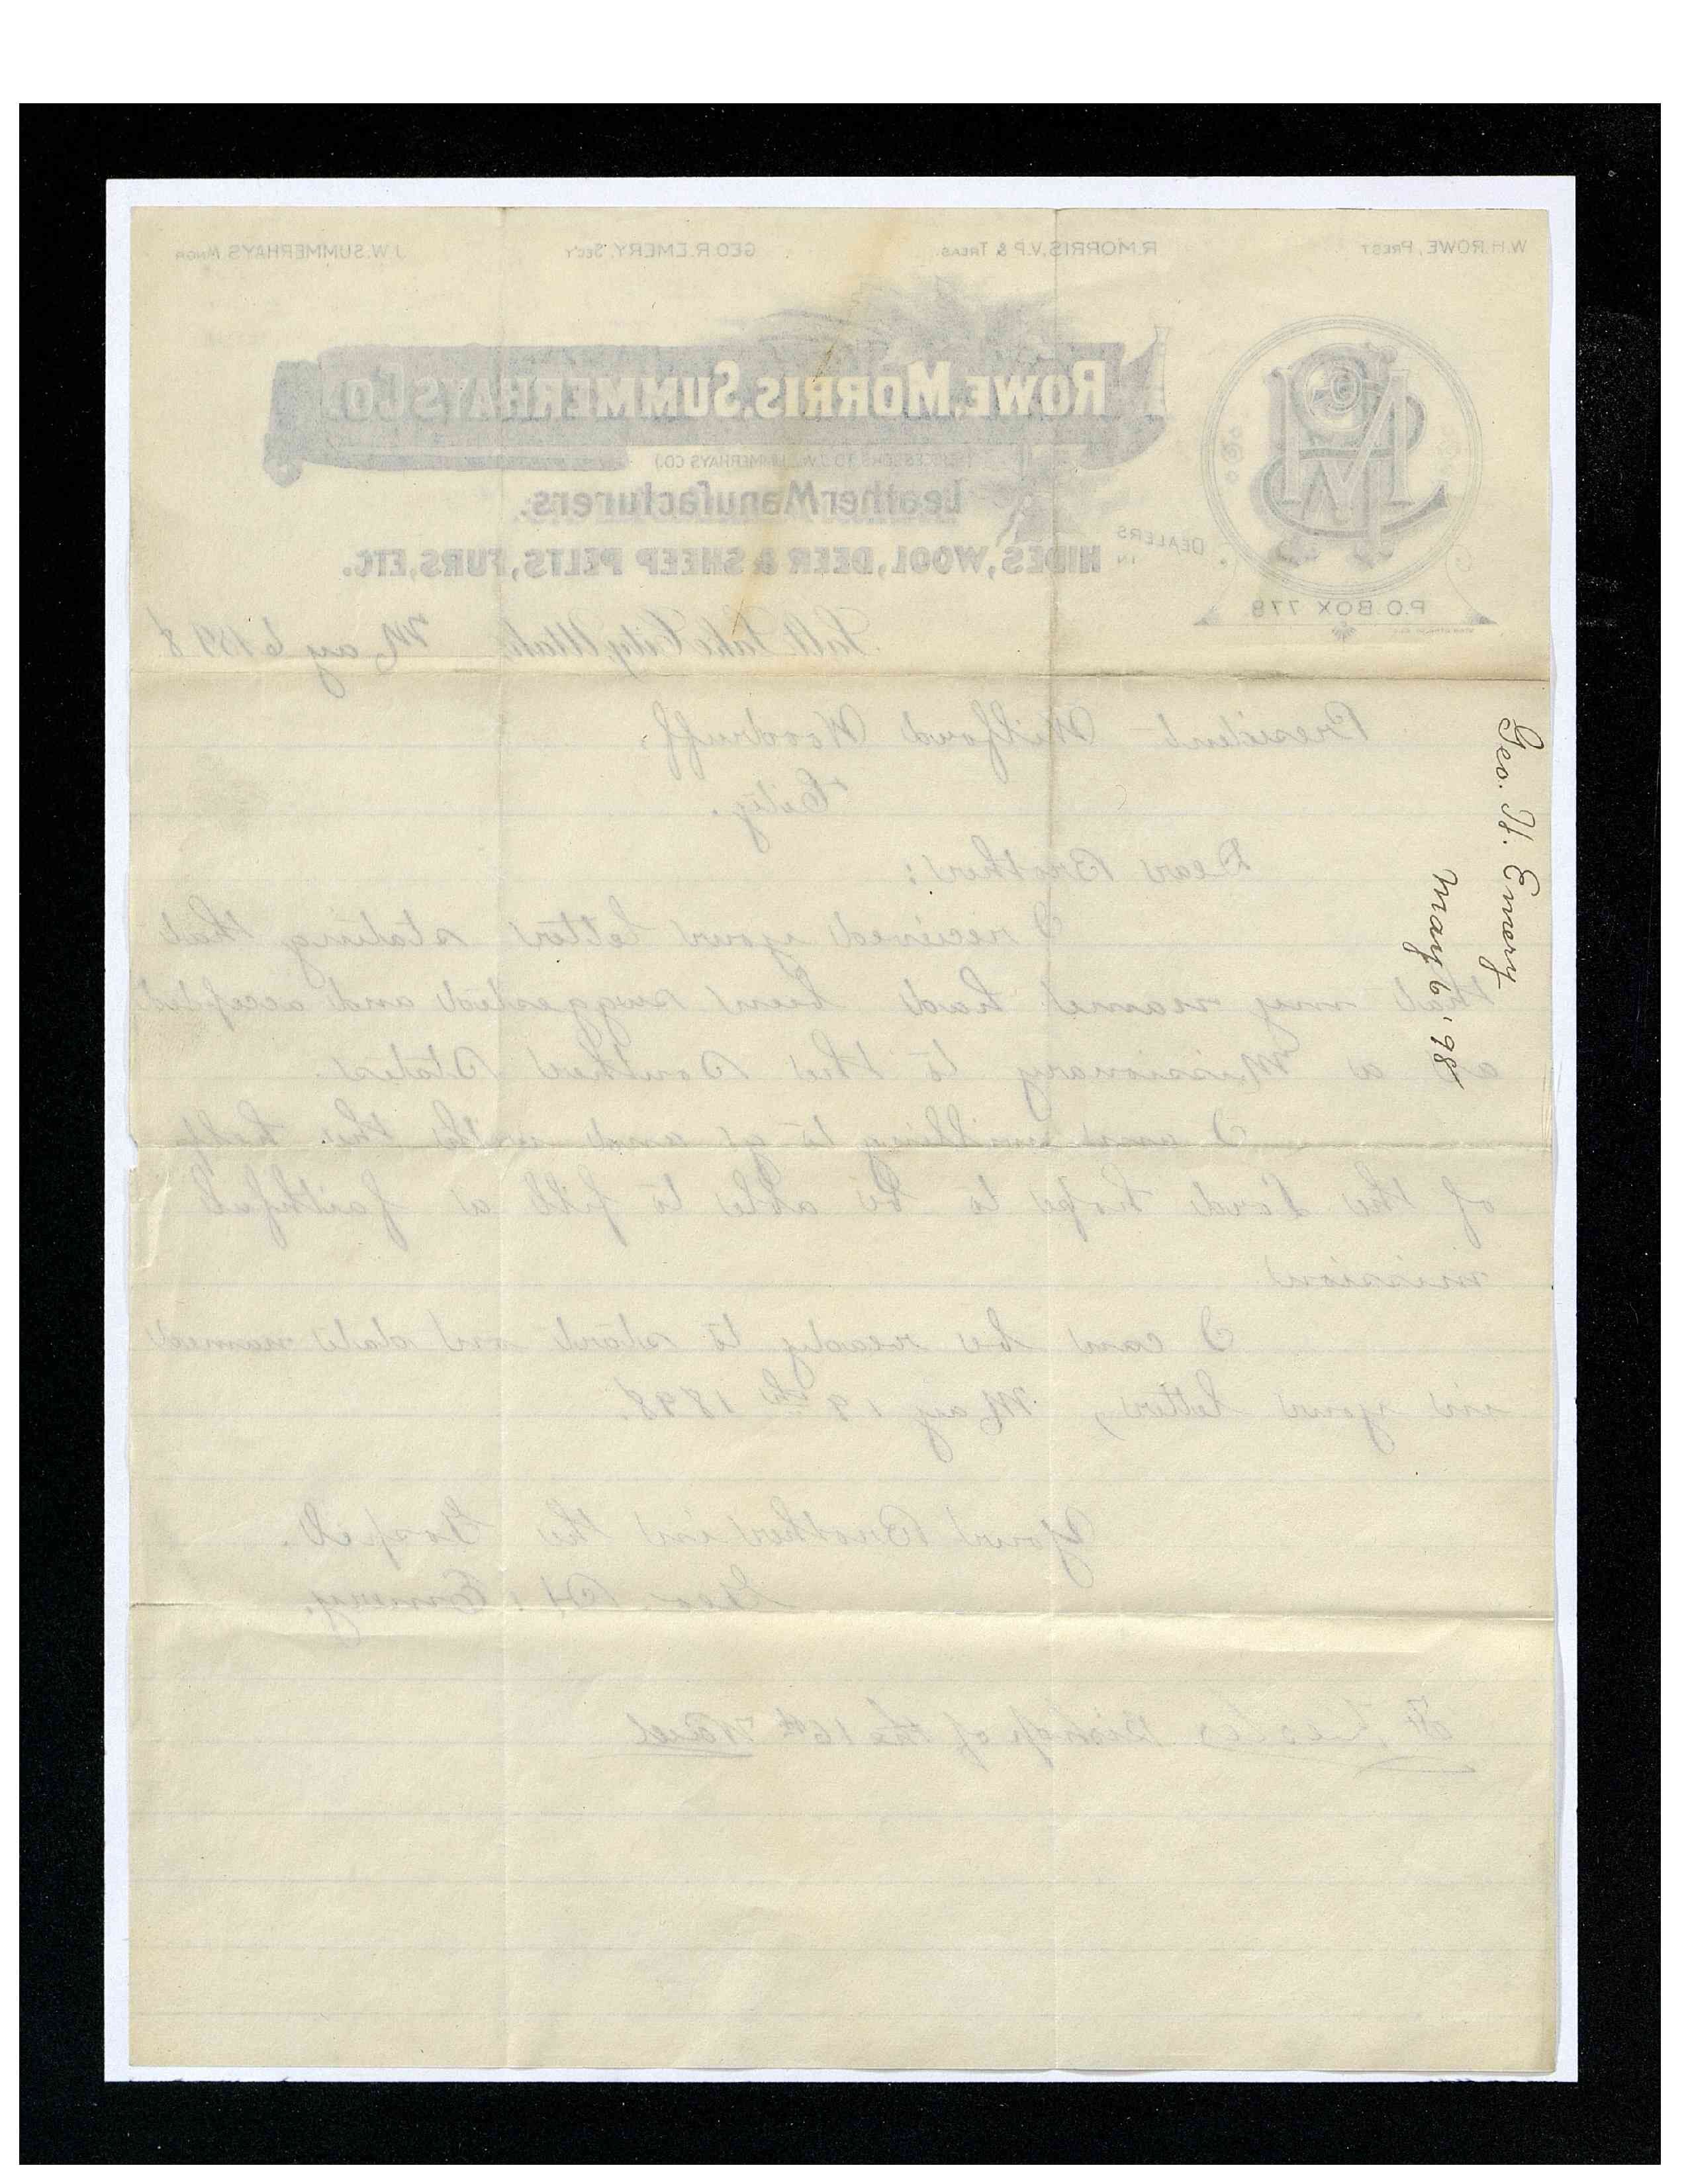 W.H. ROWE, PREST
R. MORRIS, V.P. & TREAS.
GEO. R. EMERY, SECY
J.W. SUMMERHAYS MNGR
ROWE, MORRIS, SUMMERHAYS CO.
(SUCCESSORS TO J.W. SUMMERHAYS CO.)
Leather Manufacturers.
DEALERS IN
HIDES, WOOL, DEER & SHEEP PELTS, FURS, ETC.
P.O. BOX 778
Salt Lake City, Utah, May 6 1898
President Wilford Woodruff,
City.
Dear Brother:
I recieved your letter stating that
that my name had been suggested and accepted
as a Missionary to the Southern States.
I am willing to go and with the help
of the Lord hope to be able to fill a faithfull
mission
I can be ready to start on date named
in your letter, May 19th 1898.
Your Brother in the Gospel.
Geo. H. Emery.
Bishop of the 16th Ward
Geo. H. Emery
May 6 '98